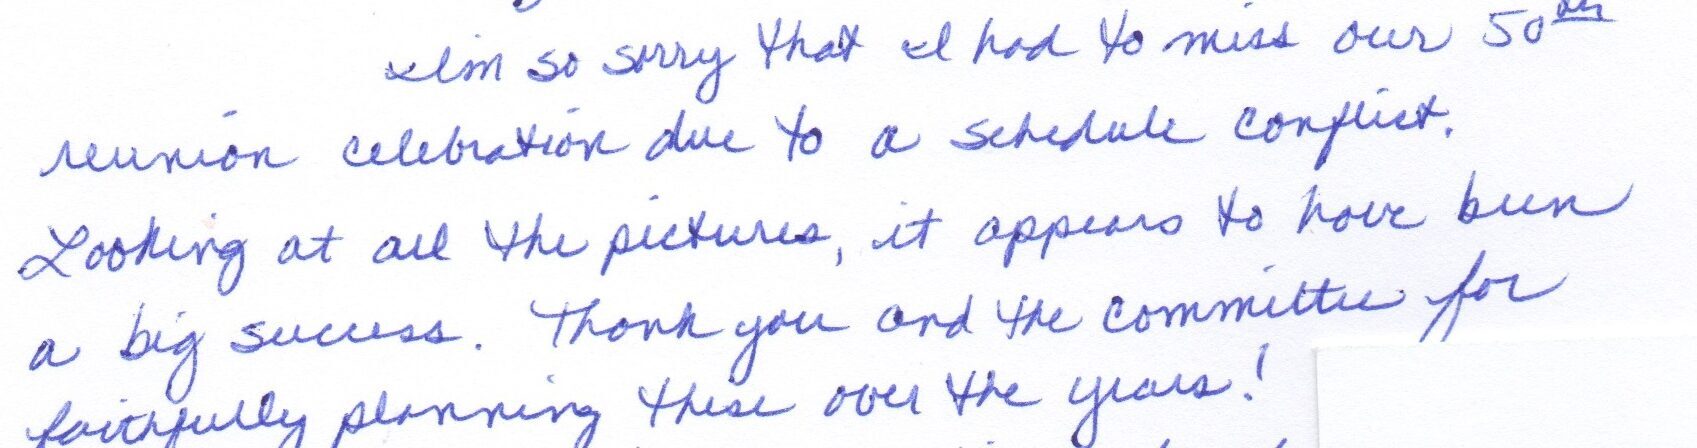 I'm so sorry that I had to miss our 50th
reunion celebration due to a schedule conflict.
Looking at all the pictures, it appears to have been
a big success. Thank you and the committee for
faithfully planning these over the years!